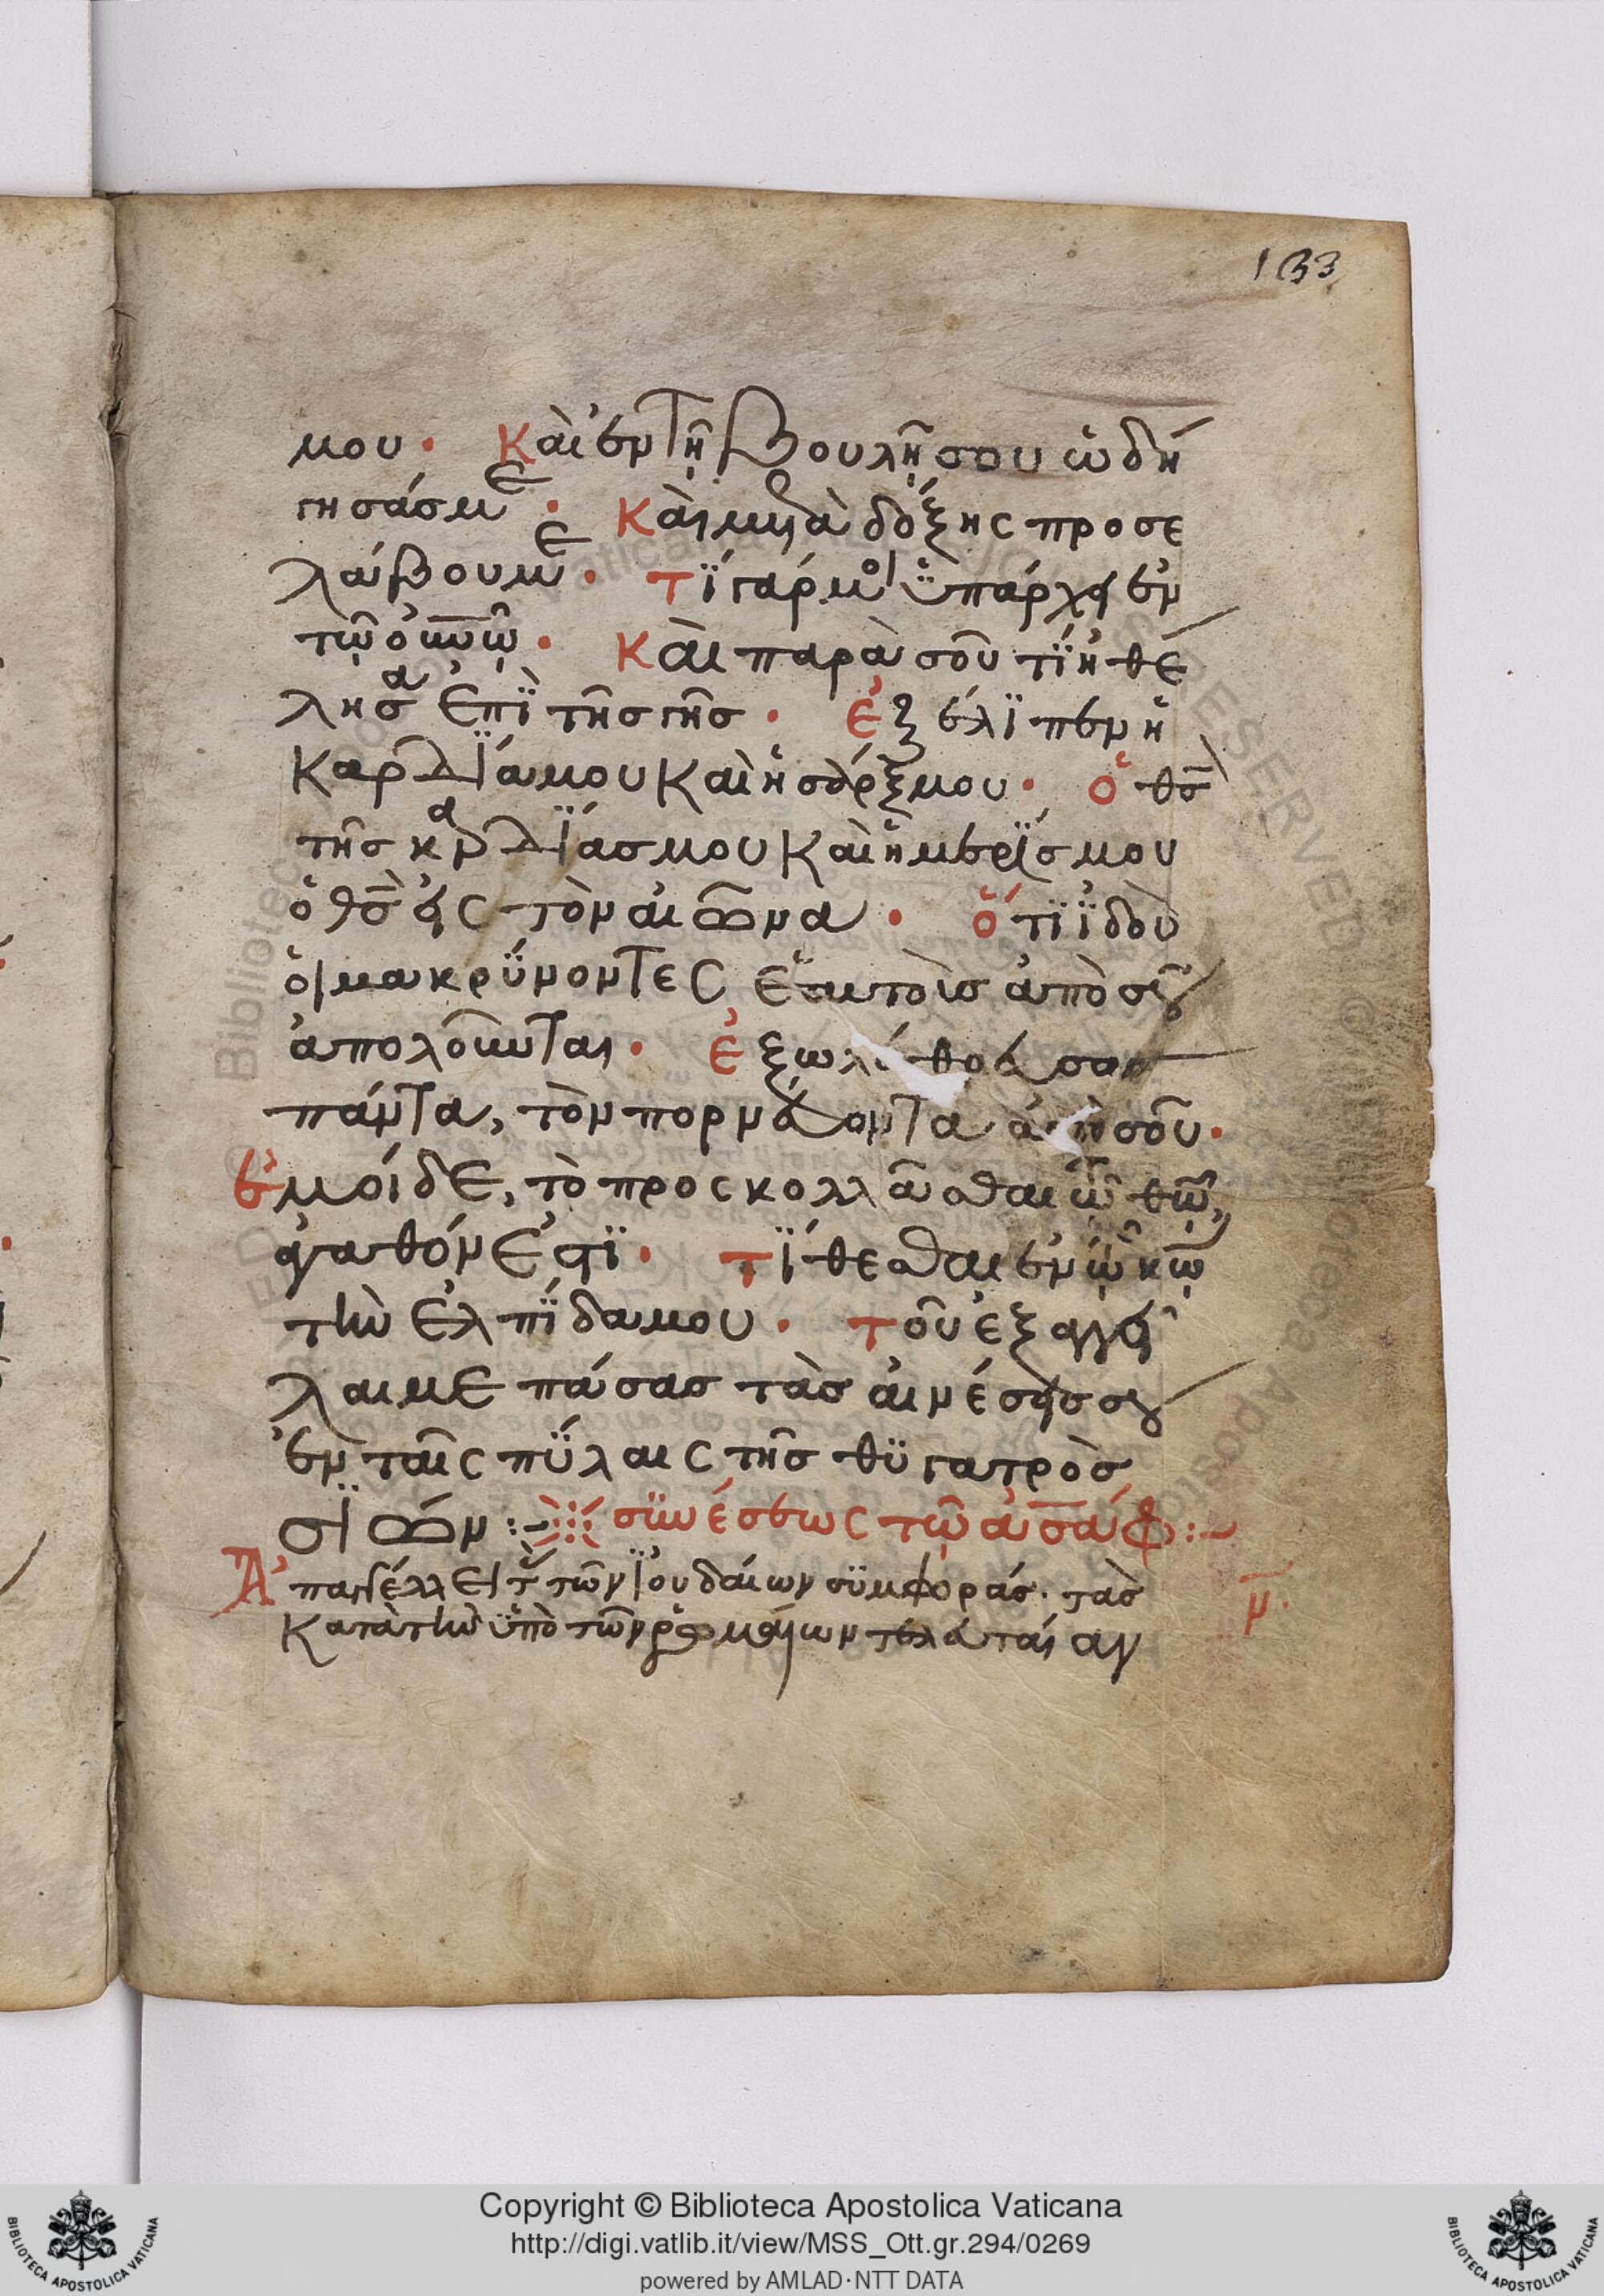 133
μου · Καὶ ἐν τῆ βουλῆ σου ὡδή
γησάς με · Καὶ μετὰ δόξης προσε
λάβου με · τί γάρ μοι ὑπάρχει ἐν
τῶ οὐνῶ · Καὶ παρὰ σοῦ τί ἠθέ
λησα ἐπὶ τῆς γῆς · ἐξέλιπεν ἡ
καρδία μου καὶ ἡ σάρξ μου · ὁ θς
τῆς καρδίας μου καὶ ἡ μερίς μου
ὁ θς εἰς τὸν αἰῶνα · ὅτι ἰδοὺ
οἱ μακρύνοντες ἑαυτοὺς ἀπὸ σοῦ
ἀπολοῦνται · ἐξωλόθρευσας
πάντα, τὸν πορνεύοντα ἀπὸ σοῦ ·
ἐμοί δε, τὸ προσκολλᾶσθαι τῶ θῶ,
ἀγαθόν ἐστι · τίθεσθαι ἐν τῶ κω
τὴν ἐλπίδα μου · τοῦ ἐξαγγεῖ
λαι με πάσας τὰς αἰνέσεις σου
ἐν ταῖς πύλαις τῆς θυγατρὸς
σιών :~ συνέσεως τῶ ἀσάφ :~
Ἀπαγγέλλει τὰς τῶν ἰουδαίων συμφοράς · τὰς
κατὰ τὴν ὑπὸ τῶν ῥωμαίων
μ ·
Copyright © Biblioteca Apostolica Vaticana
http://digi.vatlib.it/view/MSS_Ott.gr.294/0269
powered by AMLAD·NTT DATA
BIBLIOTECA APOSTOLICA VATICANA
BIBLIOTECA APOSTOLICA VATICANA